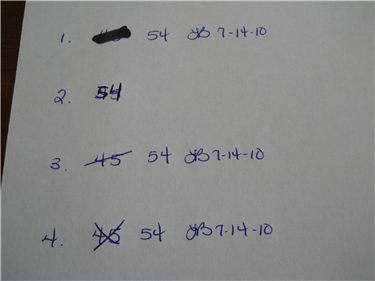 1. 45 54 JB 7-14-10
2. 54
3. 45 54 JB 7-14-10
4. 45 54 JB 7-14-10